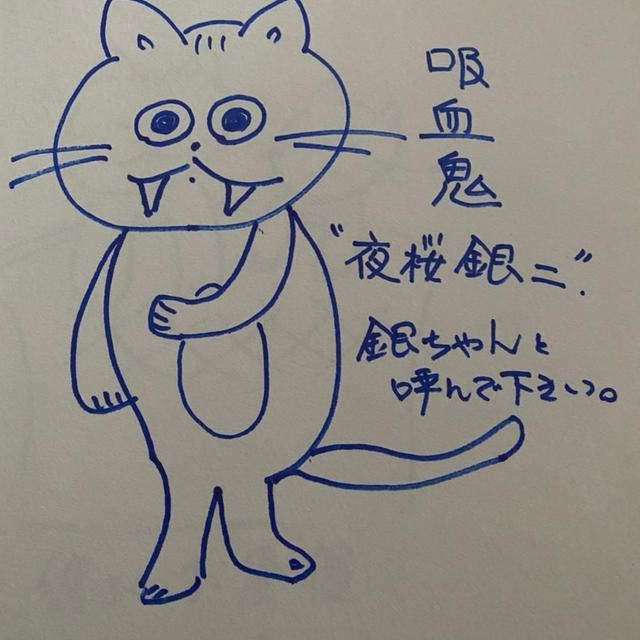 吸
血
鬼
"夜桜銀二".
銀ちゃんと
呼んで下さいっ。